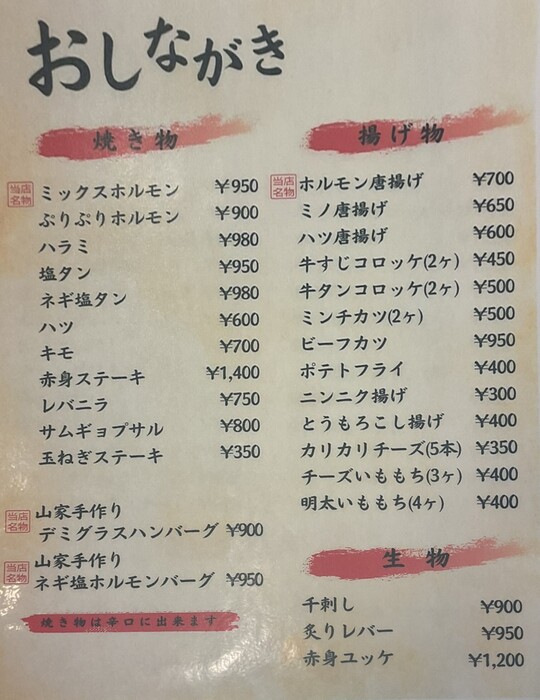 おしながき
焼き物
当店名物 ミックスホルモン ¥950
ぷりぷりホルモン ¥900
ハラミ ¥980
塩タン ¥950
ネギ塩タン ¥980
ハツ ¥600
キモ ¥700
赤身ステーキ ¥1,400
レバニラ ¥750
サムギョプサル ¥800
玉ねぎステーキ ¥350
当店名物 山家手作り
デミグラスハンバーグ ¥900
当店名物 山家手作り
ネギ塩ホルモンバーグ ¥950
焼き物は辛口に出来ます
揚げ物
当店名物 ホルモン唐揚げ ¥700
ミノ唐揚げ ¥650
ハツ唐揚げ ¥600
牛すじコロッケ(2ヶ) ¥450
牛タンコロッケ(2ヶ) ¥500
ミンチカツ(2ヶ) ¥500
ビーフカツ ¥950
ポテトフライ ¥400
ニンニク揚げ ¥300
とうもろこし揚げ ¥400
カリカリチーズ(5本) ¥350
チーズいももち(3ヶ) ¥400
明太いももち(4ヶ) ¥400
生物
千刺し ¥900
炙りレバー ¥950
赤身ユッケ ¥1,200